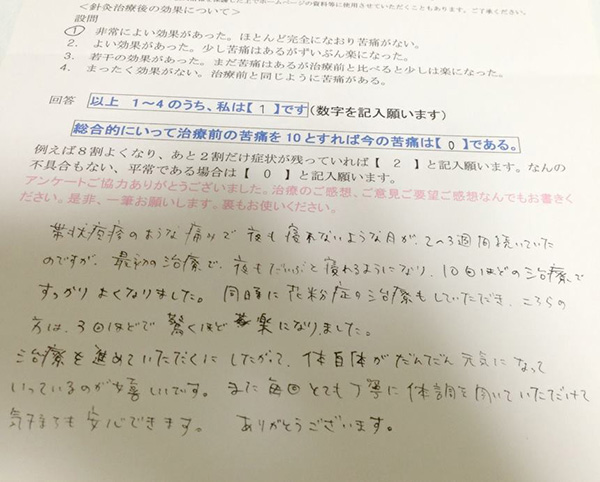 個人情報を保護した上でホームページの資料等に使用させていただくこともあります。ご了承ください。
＜針灸治療後の効果について＞
設問
① 非常によい効果があった。ほとんど完全になおり苦痛がない。
2． よい効果があった。少し苦痛はあるがずいぶん楽になった。
3． 若干の効果があった。まだ苦痛はあるが治療前と比べると少しは楽になった。
4． まったく効果がない。治療前と同じように苦痛がある。
回答 以上 1～4のうち、私は【 1 】です（数字を記入願います）
総合的にいって治療前の苦痛を10とすれば今の苦痛は【 0 】である。
例えば8割よくなり、あと2割だけ症状が残っていれば【 2 】と記入願います。なんの
不具合もない、平常である場合は【 0 】と記入願います。
アンケートご協力ありがとうございました。治療のご感想、ご意見ご要望ご感想なんでもお書きく
ださい。是非、一筆お願いします。裏もお使いください。
帯状疱疹のような痛みで夜も寝れないような日が、2～3週間続いていた
のですが、最初の治療で、夜もだいぶと寝れるようになり、10回ほどの治療で
すっかりよくなりました。同時に花粉症の治療もしていただき、こちらの
方は、3回ほどで驚くほど楽になりました。
治療を進めていただくにしたがって、体自体がだんだん元気になって
いっているのが嬉しいです。また毎回とても丁寧に体調を聞いていただけて
気持ちも安心できます。 ありがとうございます。